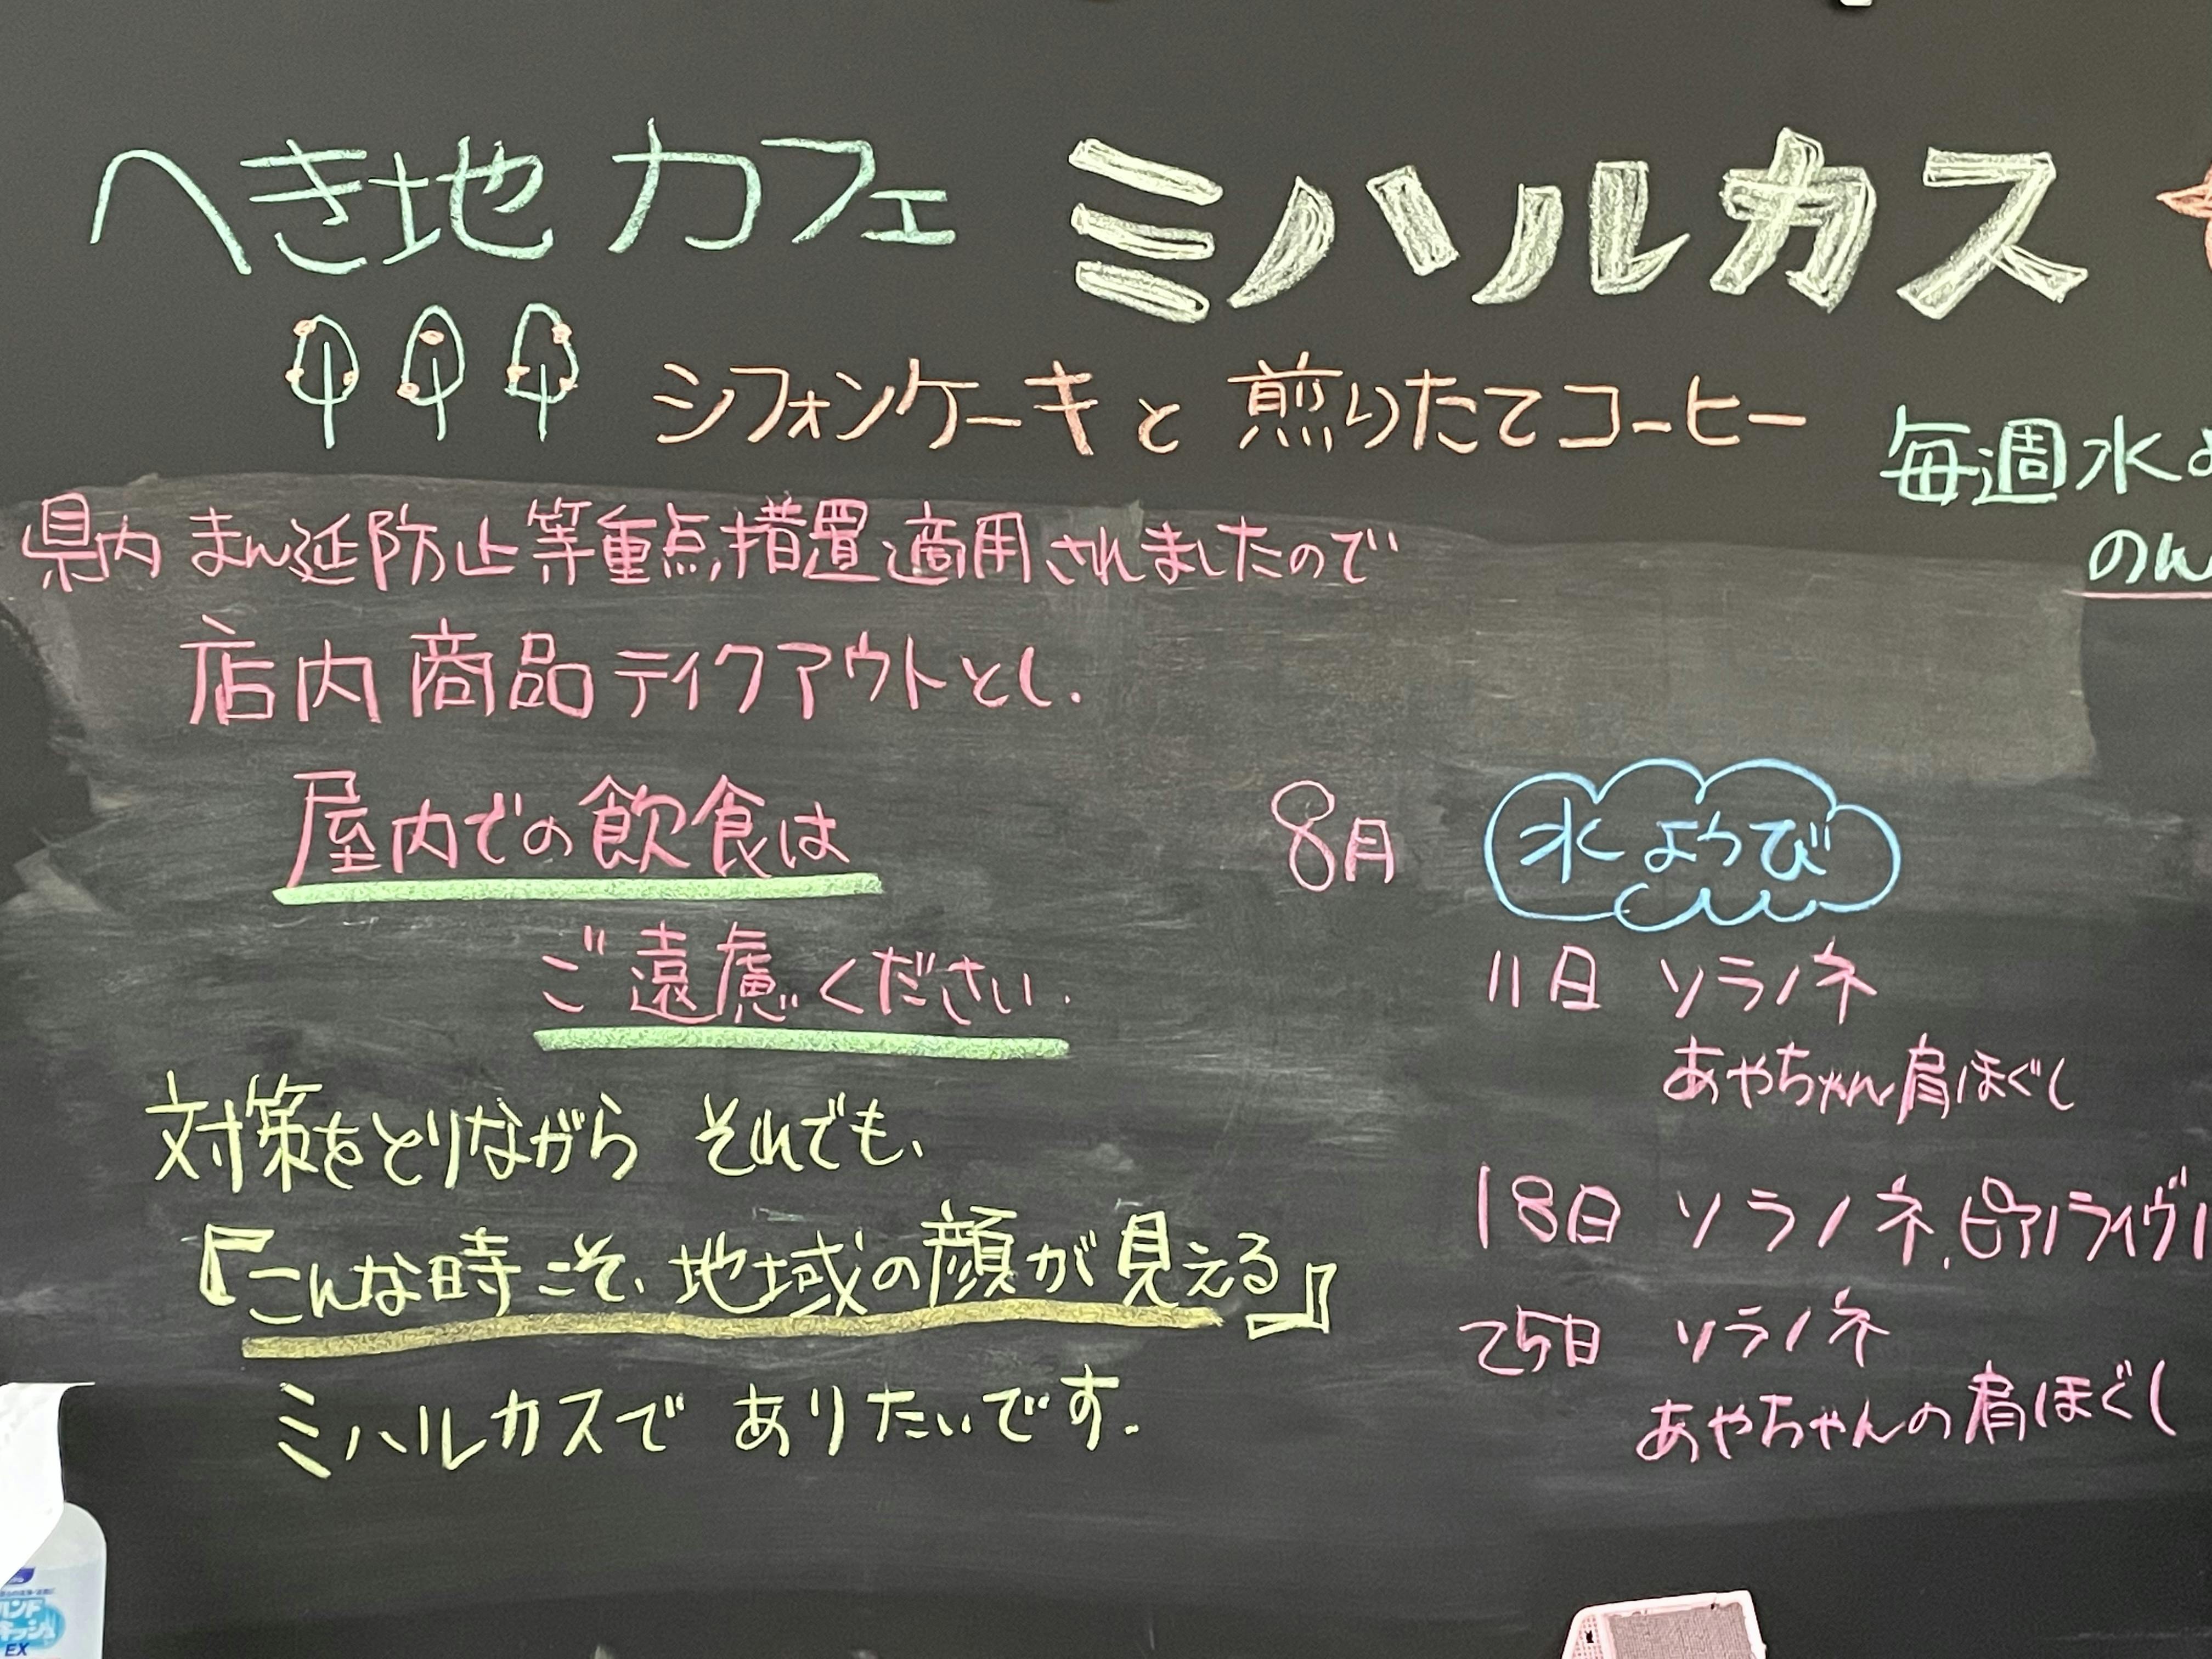 へき地カフェ ミハルカス
シフォンケーキと煎りたてコーヒー
毎週水よ
のん
県内 まん延防止等重点措置適用されましたので
店内商品テイクアウトとし.
屋内での飲食は
ご遠慮ください.
対策をとりながら それでも、
『こんな時こそ、地域の顔が見える』
ミハルカスで ありたいです.
8月 水ようび
11日 ソラノネ
あやちゃん肩ほぐし
18日 ソラノネ、ピアノライヴ
25日 ソラノネ
あやちゃんの肩ほぐし
EX